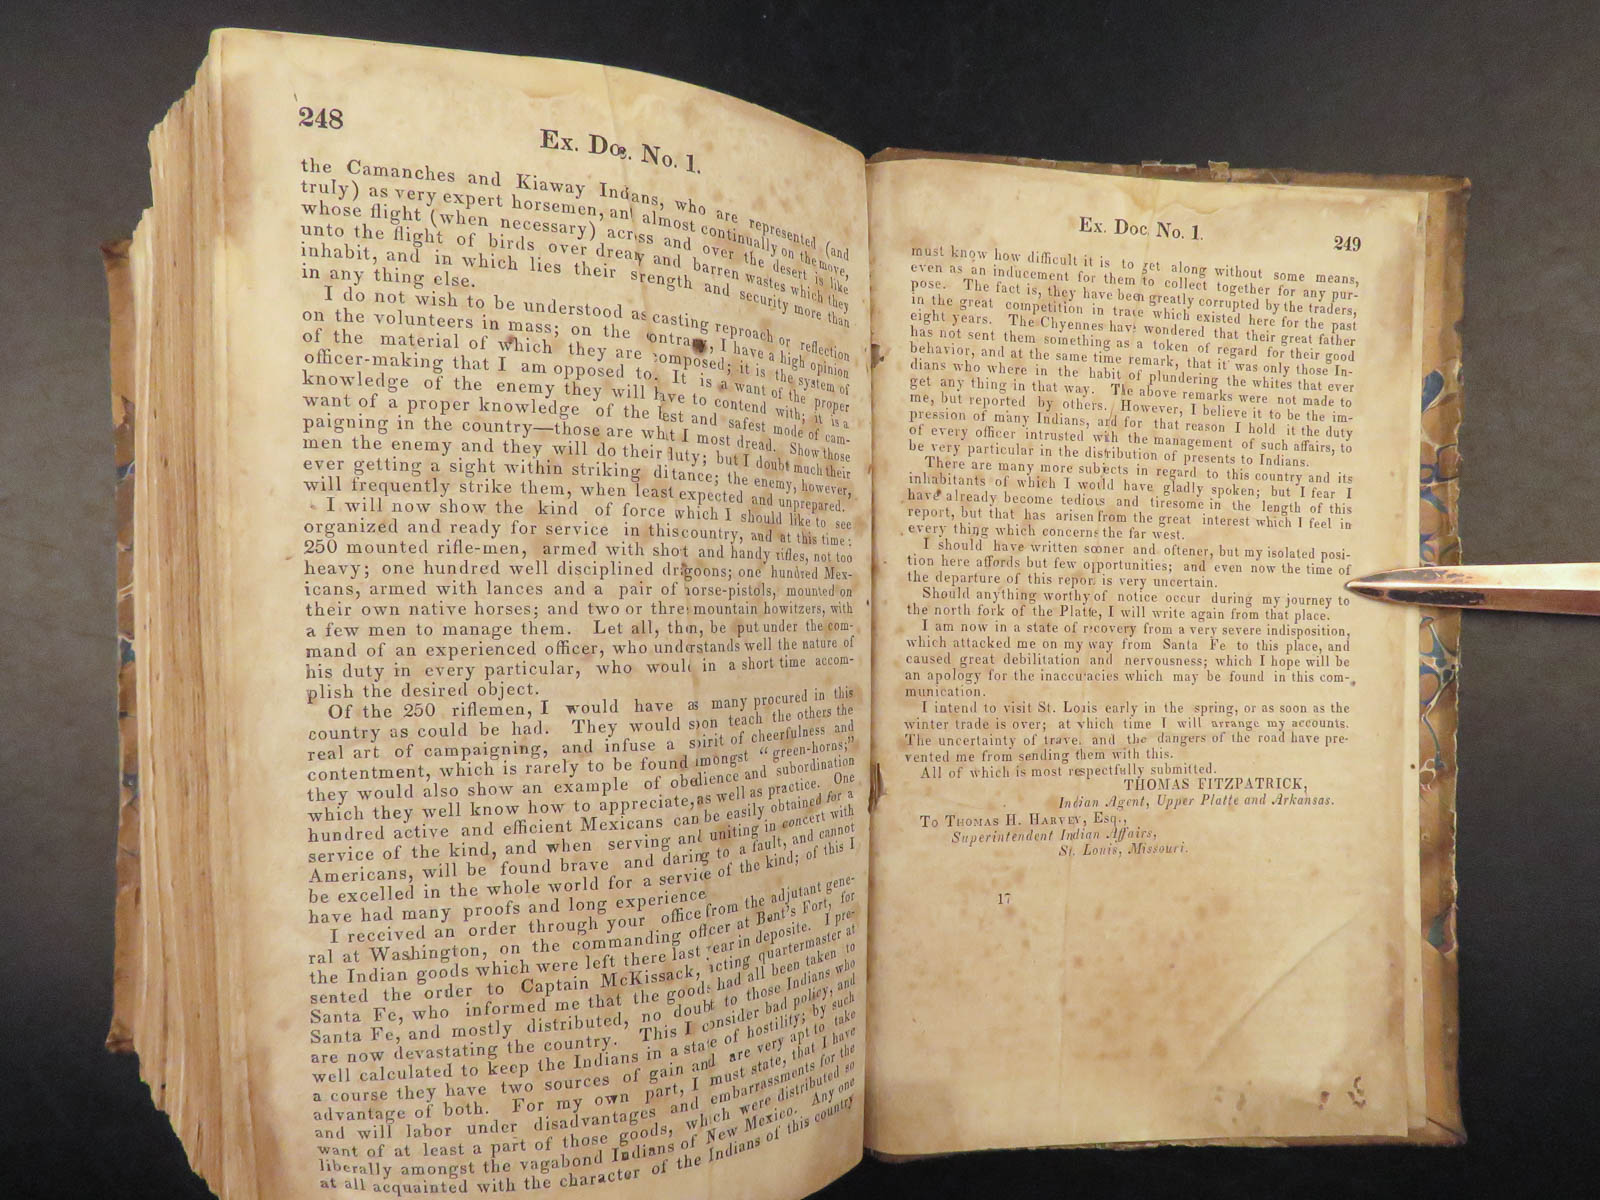 248
Ex. Doc. No. 1.
the Camanches and Kiaway Indians, who are represented (and
truly) as very expert horsemen, and almost continually on the move,
whose flight (when necessary) across and over the desert is like
unto the flight of birds over dreary and barren wastes which they
inhabit, and in which lies their strength and security more than
in any thing else.
I do not wish to be understood as casting reproach or reflection
on the volunteers in mass; on the contrary, I have a high opinion
of the material of which they are composed; it is the system of
officer-making that I am opposed to. It is a want of the proper
knowledge of the enemy they will have to contend with; it is a
want of a proper knowledge of the best and safest mode of cam-
paigning in the country—those are what I most dread. Show those
men the enemy and they will do their duty; but I doubt much their
ever getting a sight within striking ditance; the enemy, however,
will frequently strike them, when least expected and unprepared.
I will now show the kind of force which I should like to see
organized and ready for service in this country, and at this time:
250 mounted rifle-men, armed with short and handy rifles, not too
heavy; one hundred well disciplined dragoons; one hundred Mex-
icans, armed with lances and a pair of horse-pistols, mounted on
their own native horses; and two or three mountain howitzers, with
a few men to manage them. Let all, then, be put under the com-
mand of an experienced officer, who understands well the nature of
his duty in every particular, who would in a short time accom-
plish the desired object.
Of the 250 riflemen, I would have as many procured in this
country as could be had. They would soon teach the others the
real art of campaigning, and infuse a spirit of cheerfulness and
contentment, which is rarely to be found amongst "green-horns;"
they would also show an example of obedience and subordination
which they well know how to appreciate, as well as practice. One
hundred active and efficient Mexicans can be easily obtained for a
service of the kind, and when serving and uniting in concert with
Americans, will be found brave and daring to a fault, and cannot
be excelled in the whole world for a service of the kind; of this I
have had many proofs and long experience
I received an order through your office from the adjutant gene-
ral at Washington, on the commanding officer at Bent's Fort, for
the Indian goods which were left there last year in deposite. I pre-
sented the order to Captain McKissack, acting quartermaster at
Santa Fe, who informed me that the goods had all been taken to
Santa Fe, and mostly distributed, no doubt to those Indians who
are now devastating the country. This I consider bad policy, and
well calculated to keep the Indians in a state of hostility; by such
a course they have two sources of gain and are very apt to take
advantage of both. For my own part, I must state, that I have
and will labor under disadvantages and embarrassments for the
want of at least a part of those goods, which were distributed so
liberally amongst the vagabond Indians of New Mexico. Any one
at all acquainted with the character of the Indians of this country
Ex. Doc. No. 1.
249
must know how difficult it is to get along without some means,
even as an inducement for them to collect together for any pur-
pose. The fact is, they have been greatly corrupted by the traders,
in the great competition in trade which existed here for the past
eight years. The Chyennes have wondered that their great father
has not sent them something as a token of regard for their good
behavior, and at the same time remark, that it was only those In-
dians who where in the habit of plundering the whites that ever
get any thing in that way. The above remarks were not made to
me, but reported by others. However, I believe it to be the im-
pression of many Indians, and for that reason I hold it the duty
of every officer intrusted with the management of such affairs, to
be very particular in the distribution of presents to Indians.
There are many more subjects in regard to this country and its
inhabitants of which I would have gladly spoken; but I fear I
have already become tedious and tiresome in the length of this
report, but that has arisen from the great interest which I feel in
every thing which concerns the far west.
I should have written sooner and oftener, but my isolated posi-
tion here affords but few opportunities; and even now the time of
the departure of this report is very uncertain.
Should anything worthy of notice occur during my journey to
the north fork of the Platte, I will write again from that place.
I am now in a state of recovery from a very severe indisposition,
which attacked me on my way from Santa Fe to this place, and
caused great debilitation and nervousness; which I hope will be
an apology for the inaccuracies which may be found in this com-
munication.
I intend to visit St. Louis early in the spring, or as soon as the
winter trade is over; at which time I will arrange my accounts.
The uncertainty of travel and the dangers of the road have pre-
vented me from sending them with this.
All of which is most respectfully submitted.
THOMAS FITZPATRICK,
Indian Agent, Upper Platte and Arkansas.
To Thomas H. Harvey, Esq.,
Superintendent Indian Affairs,
St. Louis, Missouri.
17